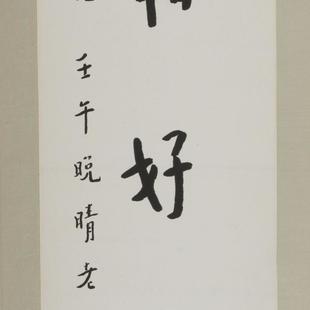 好
壬午晚晴老